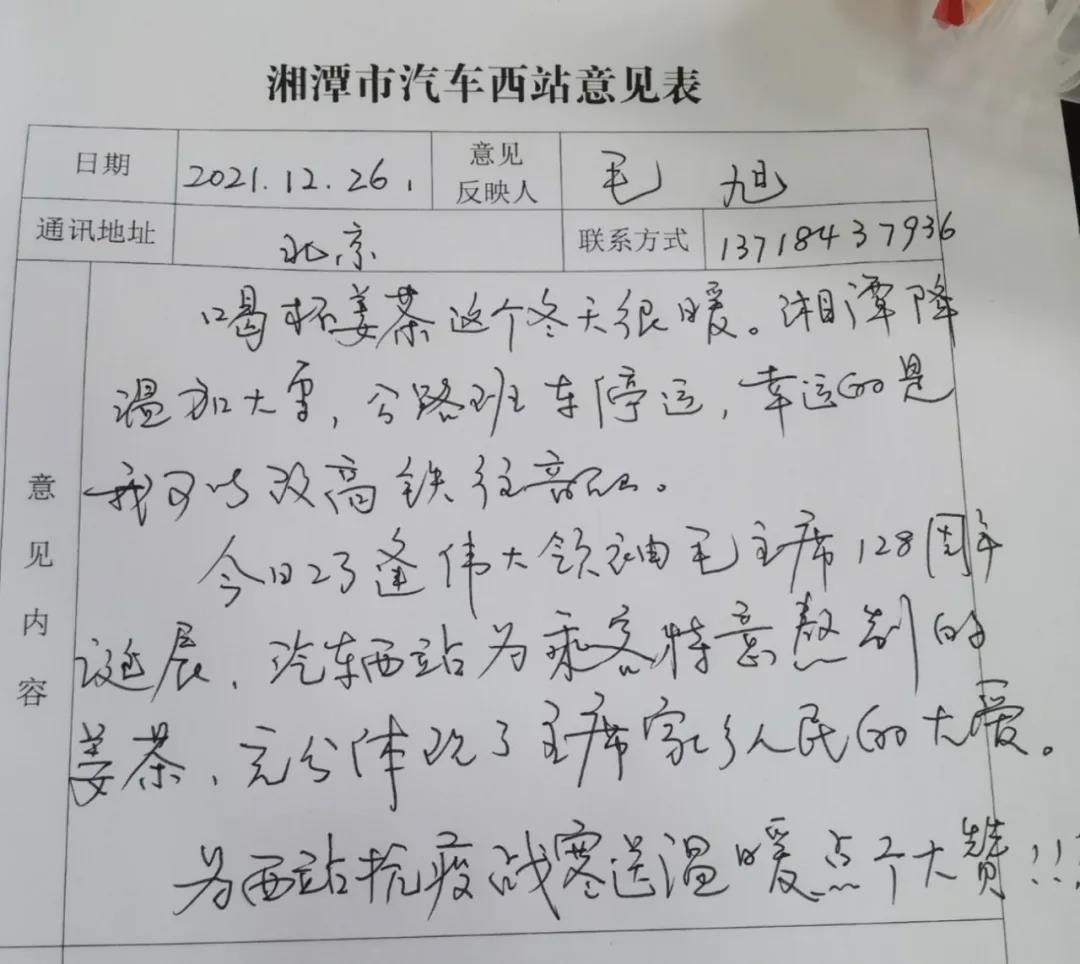 湘潭市汽车西站意见表
日期 2021.12.26. 意见反映人 毛旭
通讯地址 北京 联系方式 13718437936
意见内容
喝杯姜茶这个冬天很暖。湘潭降
温加大雪,公路班车停运,幸运的是
我可以改高铁往韶山。
今日2巧逢伟大领袖毛主席128周年
诞辰、汽车西站为乘客特意熬制的
姜茶、充分体现了主席家乡人民的大爱。
为西站抗疫战寒送温暖点个大赞!!!